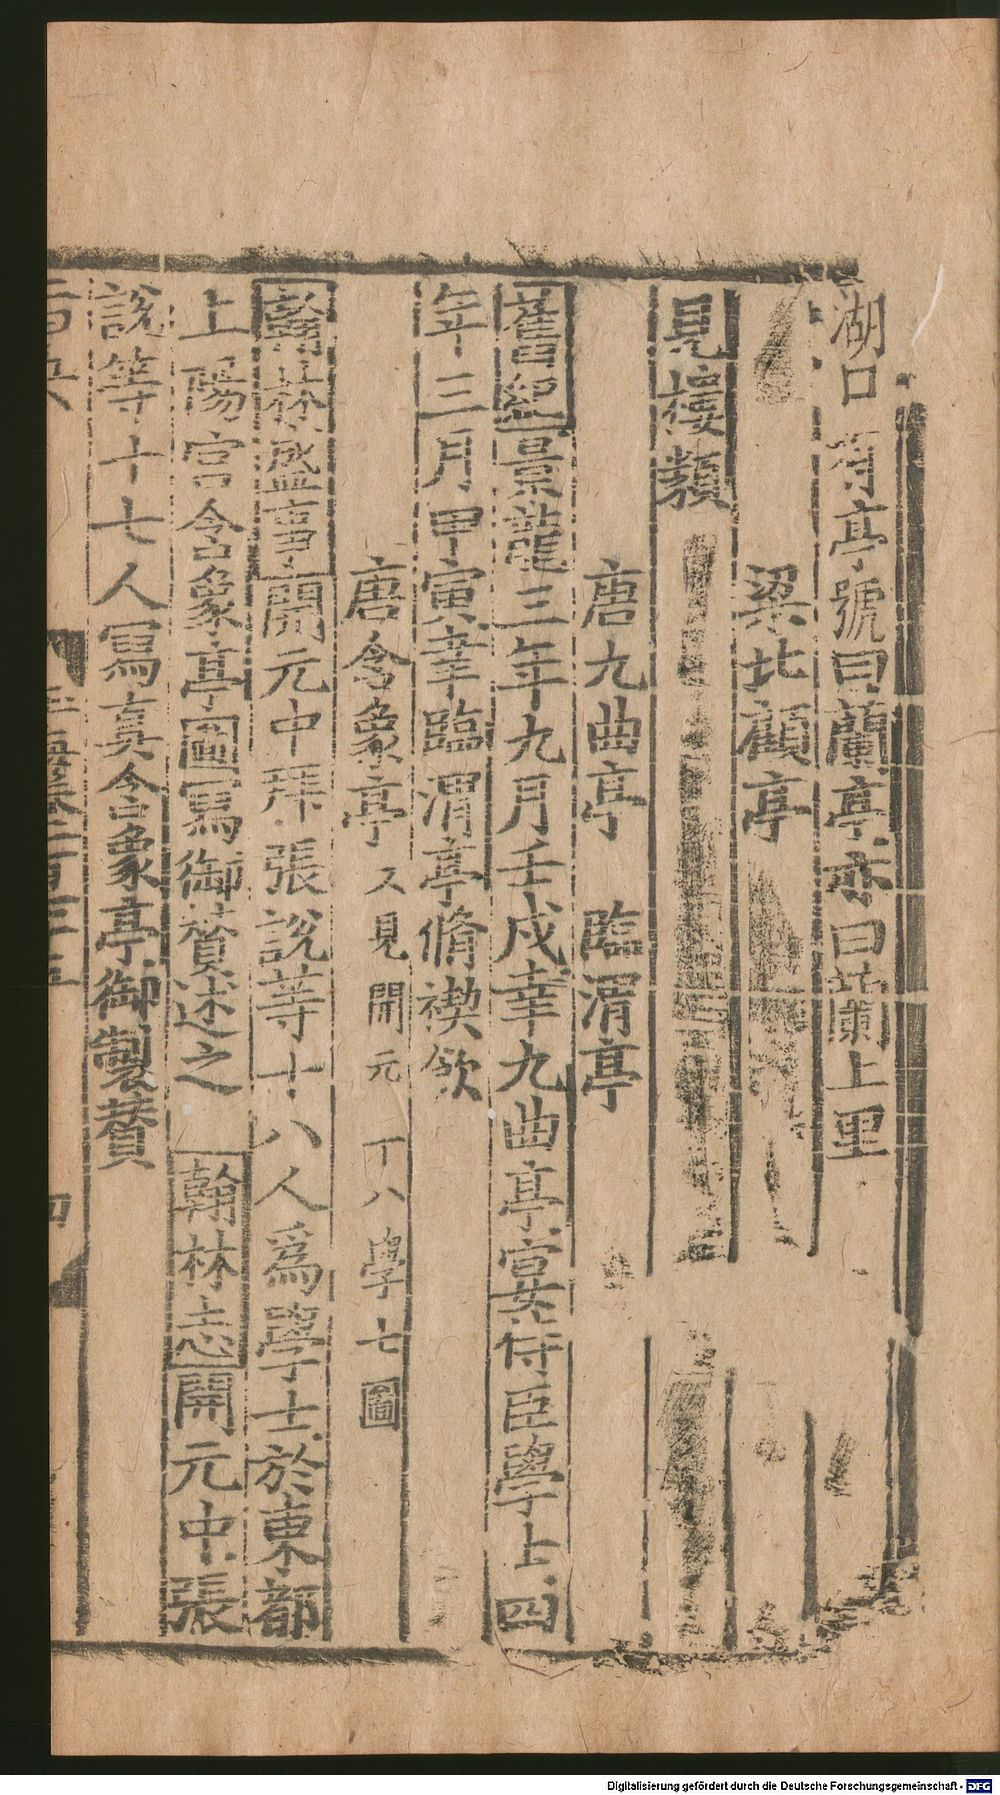 湖口有亭號曰蘭亭亦曰蘭上里
梁北顧亭
見樓類
唐九曲亭 臨渭亭
舊紀景龍三年九月壬戌幸九曲亭宴侍臣學士四
年三月甲寅幸臨渭亭脩禊飲
唐含象亭又見開元十八學士圖
翰林盛事開元中拜張說等十八人爲學士於東都
上陽宮含象亭圖寫御贊述之 翰林志開元中張
說等十七人寫真含象亭御製贊
Digitalisierung gefördert durch die Deutsche Forschungsgemeinschaft - DFG